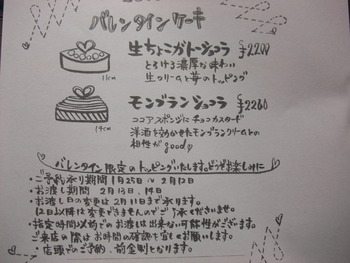 バレンタインケーキ
生ちょこガトーショコラ ¥2200
とろける濃厚な味わい
生クリームと苺のトッピング
11cm
モンブランショコラ ¥2260
ココアスポンジにチョコカスタード
洋酒を効かせたモンブランクリームとの
相性がgood♪
14cm
バレンタイン限定のトッピングいたします。どうぞお楽しみに
・ご予約承り期間 1月25日〜2月12日
・お渡し期間 2月13日、14日
・お渡し日の変更は2月11日まで承ります。
12日以降は変更できませんのでご了承くださいませ。
・指定時間以前でのお渡しは出来ない可能性がございます。
ご来店の際はお時間の確認を宜しくお願いします。
・店頭でのご予約、前金制となります。